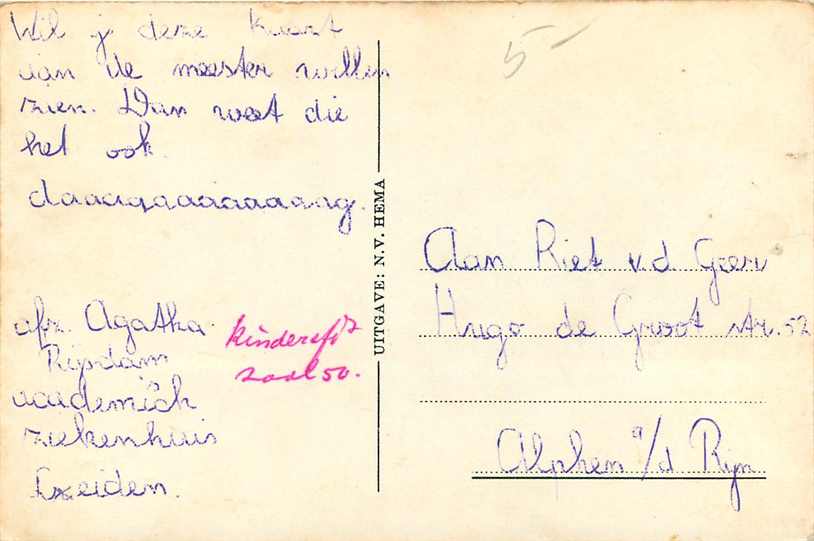 Wil j deze kaart
aan de meester willen
zien. Dan weet die
het ook.
daaaagaaaaaaaaag.
afz. Agatha
Rijsdam
academisch
ziekenhuis
Leiden.
kinderafd
zaal 50.
UITGAVE: N.V. HEMA
5-
Aan Riet v.d Geer
Hugo de Groot str. 52
Alphen a/d Rijn